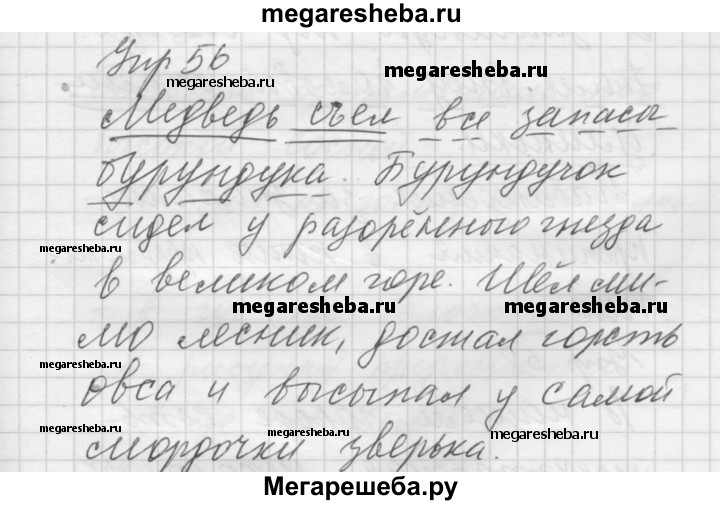 megaresheba.ru
Упр 56
megaresheba.ru
Медведь съел все запасы
бурундука. Бурундучок
сидел у разорённого гнезда
megaresheba.ru
megaresheba.ru
в великом горе. Шёл ми-
megaresheba.ru
megaresheba.ru
мо лесник, достал горсть
megaresheba.ru
овса и высыпал у самой
megaresheba.ru
megaresheba.ru
megaresheba.ru
мордочки зверька.
Мегарешеба.ру